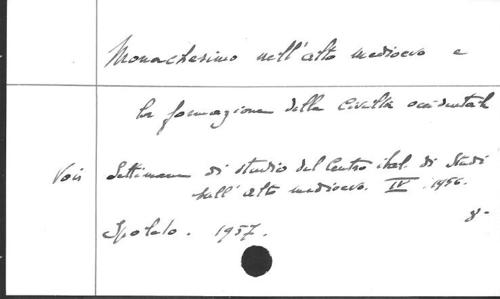 Monachesimo nell'alto medioevo e
la formazione della civiltà occidentale
Voir Settimane di studio del Centro ital. di Studi
sull'alto medioevo. IV. 1956.
Spoleto. 1957. 8-